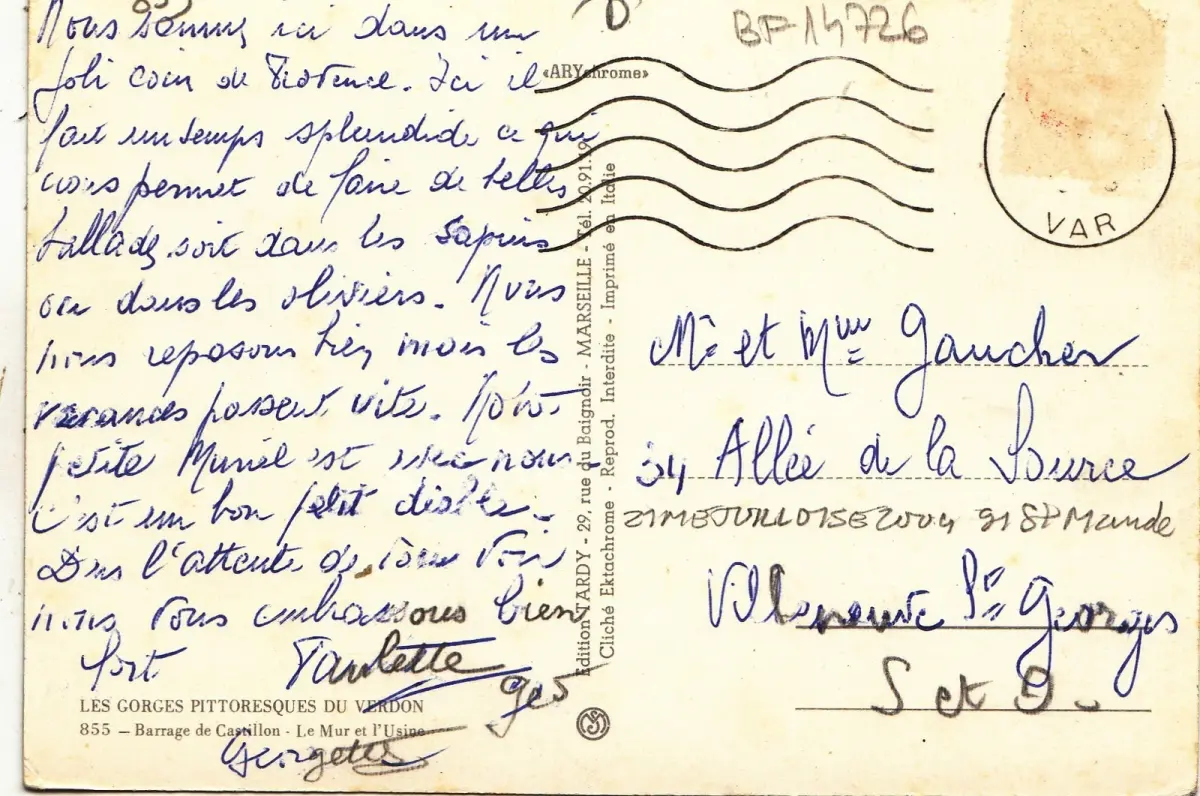 Nous sommes ici dans un
joli coin de Provence. Ici il
fait un temps splendide ce qui
nous permet de faire de belles
ballades soit dans les sapins
ou dans les oliviers. Nous
nous reposons bien mais les
vacances passent vite. Notre
petite Muriel est avec nous
c'est un bon petit diable.
Dans l'attente de vous voir
nous vous embrassons bien
fort Paulette
ges
Georgette
LES GORGES PITTORESQUES DU VERDON
855 — Barrage de Castillon - Le Mur et l'Usine
«ARYchrome»
Edition TARDY - 29, rue du Baignoir - MARSEILLE - Tél. 20.91.19
Cliché Ektachrome - Reprod. Interdite - Imprimé en Italie
D
BF 14726
VAR
Mr et Mme Gaucher
34 Allée de la Source
2004 91 St Mande
Villeneuve St Georges
S et O.